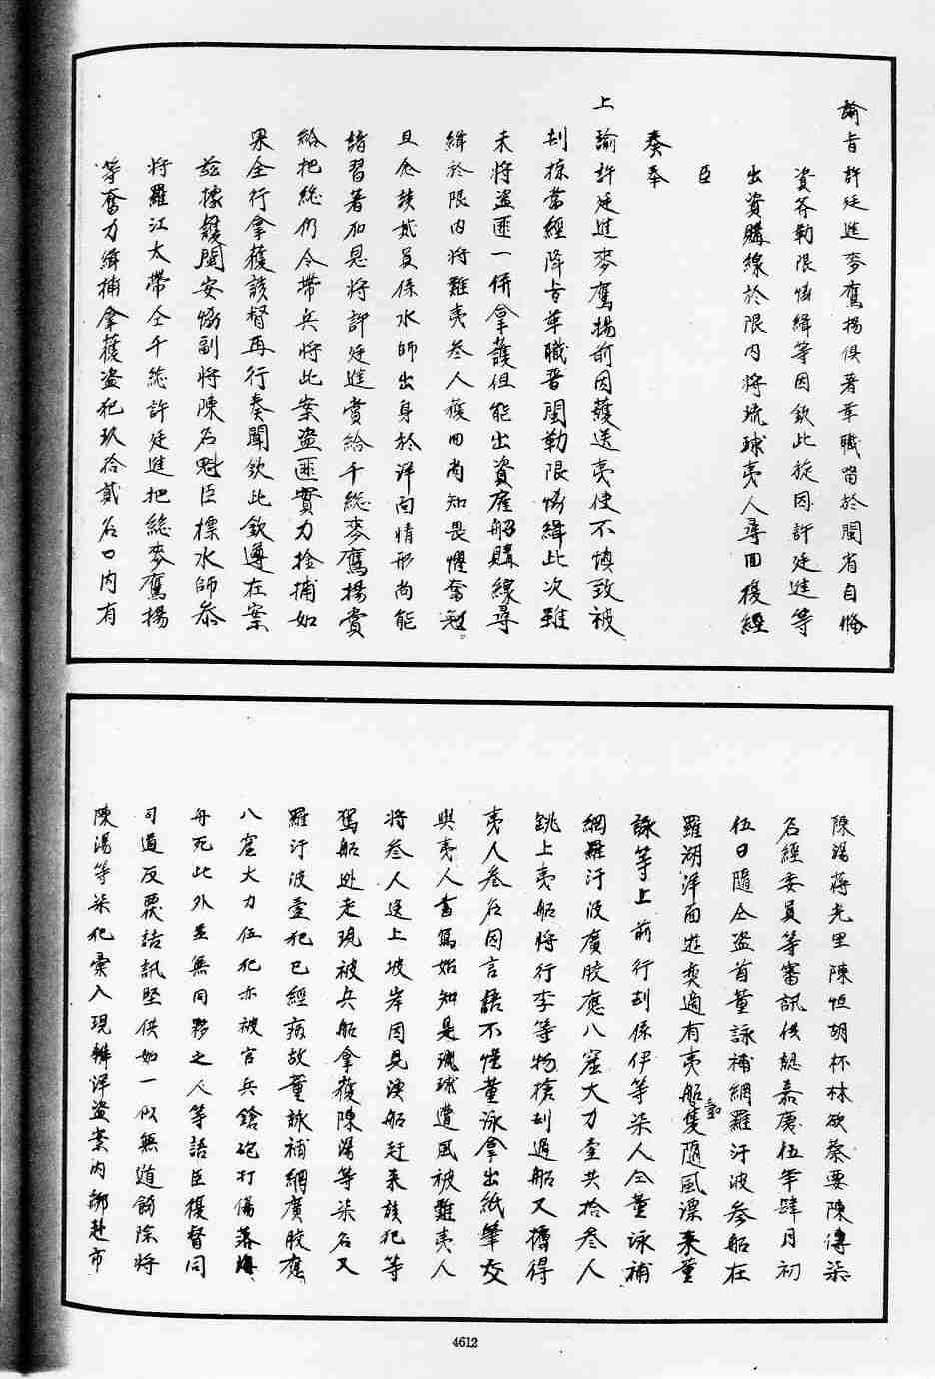 諭旨許廷進麥鷹揚俱著革職留於閩省自備
資斧勒限偹緝等因欽此旋因許廷進等
出資購線於限內將琉球夷人尋回復經
臣
奏奉
上諭許廷進麥鷹揚前因護送夷使不慎致被
刦掠當經降旨革職晋閩勒限偹緝此次雖
未將盜匪一併拿護但能出資雇船購線尋
緝於限內將難夷叁人獲回尚知畏懼奮勉
且念該貳員係水師出身於洋面情形尚能
諳習著加恩將許廷進賞給千總麥鷹揚賞
給把總仍令帶兵將此案盜匪實力捡捕如
果全行拿獲該督再行奏聞欽此欽遵在案
茲據護閩安協副將陳名魁臣標水師叅
將羅江太帶仝千總許廷進把總麥鷹揚
等奮力緝捕拿獲盜犯玖拾貳名口內有
陳湯蔣光里陳恒胡杯林欲蔡要陳傳柒
名經委員等審訊供認嘉慶伍年肆月初
伍日隨仝盜首董詠補網羅汙波叁船在
羅湖洋面遊奕適有夷船壹隻隨風漂來董
詠等上前行刦係伊等柒人仝董詠補
網羅汙波廣胶應八窟大力壹共拾叁人
跳上夷船將行李等物搶刦過船又擄得
夷人叁名因言語不懂董詠拿出紙筆交
與夷人書寫始知是琉球遭風被難夷人
將叁人送上坡岸因見漁船赶來該犯等
駕船逃走現被兵船拿獲陳湯等柒名又
羅汙波壹犯已經病故董詠補網廣胶應
八窟大力伍犯亦被官兵鎗砲打傷落海
身死此外並無同夥之人等語臣復督同
司道反覆詰訊堅供如一似無遁飾除將
陳湯等柒犯彙入現辦洋盜案內鄉赴市
4612